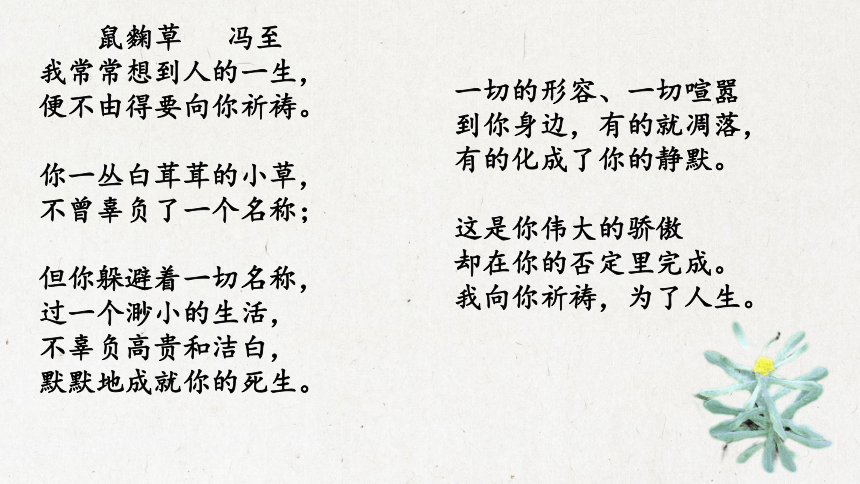 鼠麴草 冯至
我常常想到人的一生，
便不由得要向你祈祷。
你一丛白茸茸的小草，
不曾辜负了一个名称；
但你躲避着一切名称，
过一个渺小的生活，
不辜负高贵和洁白，
默默地成就你的死生。
一切的形容、一切喧嚣
到你身边，有的就凋落，
有的化成了你的静默。
这是你伟大的骄傲
却在你的否定里完成。
我向你祈祷，为了人生。